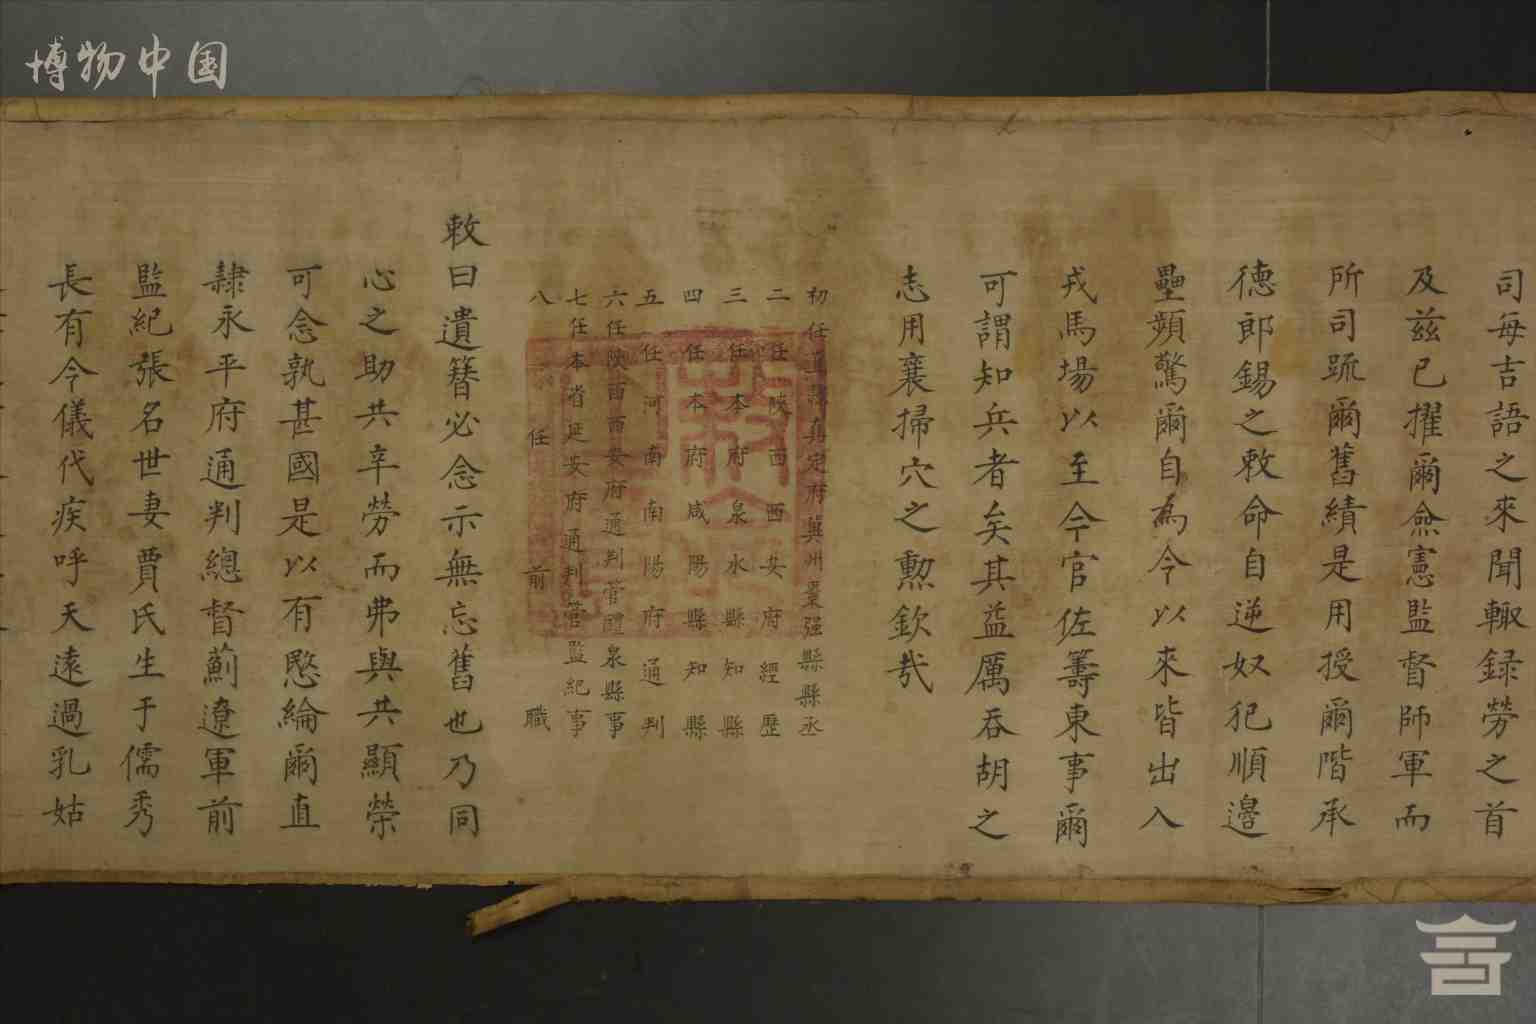 博物中国
司每吉語之來聞輙録勞之首
及兹已擢爾僉憲監督師軍而
所司䟽爾舊績是用授爾階承
德郎錫之敕命自逆奴犯順邊
壘頻驚爾自為令以來皆出入
戎馬場以至今官佐籌東事爾
可謂知兵者矣其益厲吞胡之
志用襄掃穴之勲欽哉
初任直隸真定府冀州棗强縣縣丞
二任陝西西安府經歷
三任本府泉水縣知縣
四任本府咸陽縣知縣
五任河南南陽府通判
六任陝西西安府通判管醴泉縣事
七任本省延安府通判管監紀事
八任前職
敕曰遺簪必念示無忘舊也乃同
心之助共辛勞而弗與共顯榮
可念孰甚國是以有愍綸爾直
隸永平府通判總督薊遼軍前
監紀張名世妻賈氏生于儒秀
長有令儀代疾呼天遠過乳姑
敕命